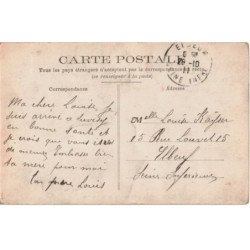 CARTE POSTALE
Tous les pays étrangers n'acceptent pas la correspondance au recto.
(se renseigner à la poste)
Correspondance
Adresse
ELBEUF
29-10
11
Ma chère Louise je
suis arrivé à
en bonne santé et
je crois que vous
de même Embrasse bien
ta mère pour moi
ton frère Louis
Melle Louise Kayser
15 Rue Louvet 15
Elbeuf
Seine Inférieure